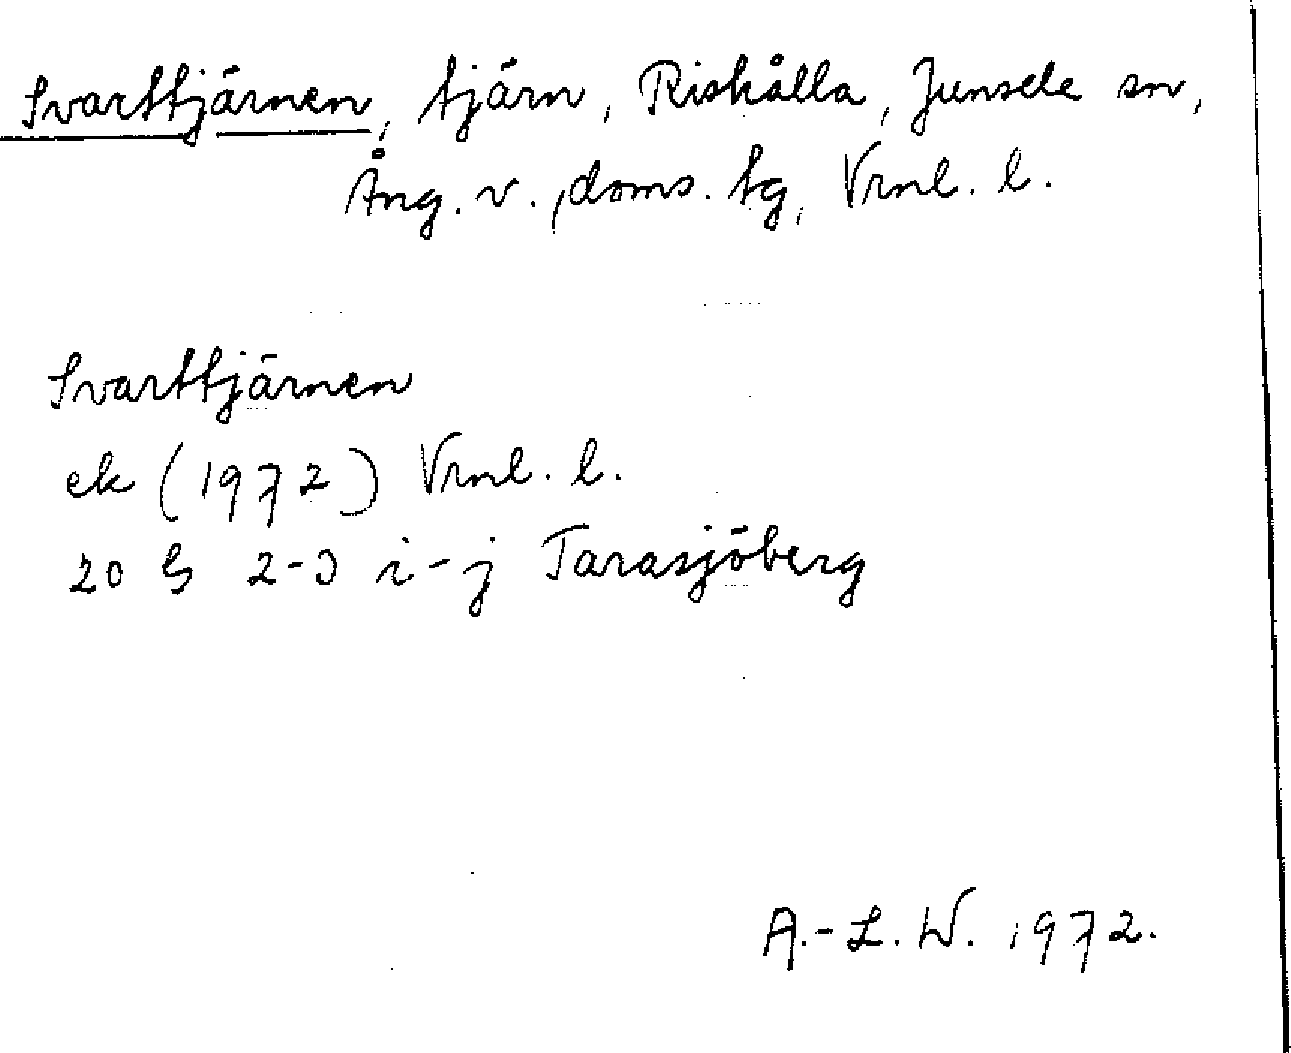 Svarttjärnen, tjärn, Riskålla, Junsele sn,
Ång. v., doms. tg, Vrnl. l.
Svarttjärnen
ek (1972) Vrnl. l.
20 G 2-3 i-j Tarasjöberg
A.-L. W. 1972.